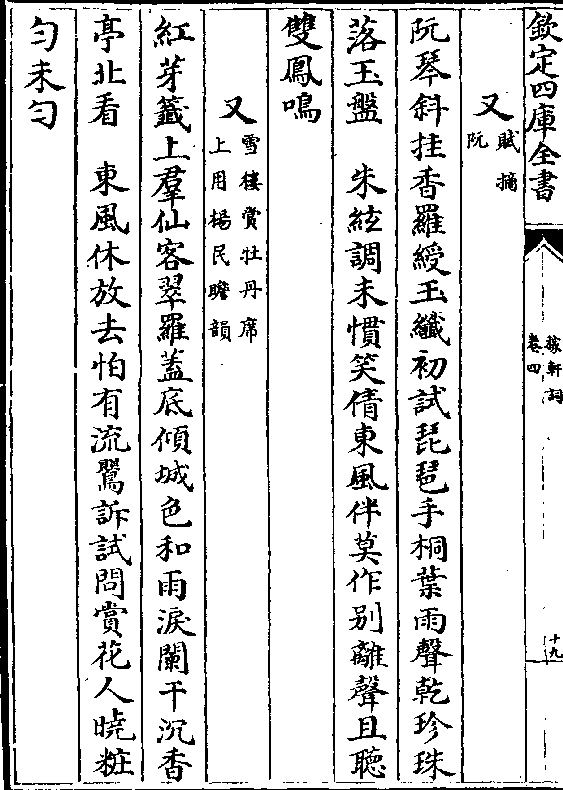 欽定四庫全書
稼軒詞
卷四
十九
又
賦摘
阮
阮琴斜挂香羅綬玉纖初試琵琶手桐葉雨聲乾珍珠
落玉盤　朱絃調未慣笑倩東風伴莫作别離聲且聽
雙鳳鳴
又
雪樓賞牡丹席
上用楊民瞻韻
紅芽籖上羣仙客翠羅蓋底傾城色和雨淚闌干沉香
亭北看　東風休放去怕有流鶯訴試問賞花人曉粧
勻未勻